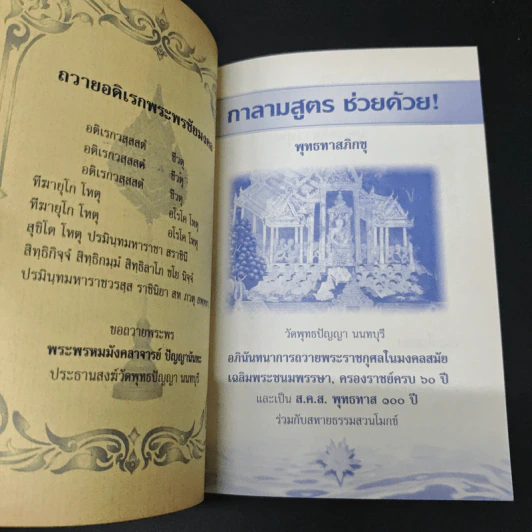 ถวายอดิเรกพระพรชัยมงคล
อติเรกวสฺสสตํ ชีวตุ
อติเรกวสฺสสตํ ชีวตุ
อติเรกวสฺสสตํ ชีวตุ
ทีฆายุโก โหตุ อโรโค โหตุ
ทีฆายุโก โหตุ อโรโค โหตุ
สุขิโต โหตุ ปรมินฺทมหาราชา สราชินี
สิทฺธิกิจฺจํ สิทฺธิกมฺมํ สิทฺธิลาโภ ชโย นิจฺจํ
ปรมินฺทมหาราชวรสฺส ราชินิยา สห ภวตุ
ขอถวายพระพร
พระพรหมมังคลาจารย์ ปัญญานันทะ
ประธานสงฆ์วัดพุทธปัญญา นนทบุรี
กาลามสูตร ช่วยด้วย!
พุทธทาสภิกขุ
วัดพุทธปัญญา นนทบุรี
อภินันทนาการถวายพระราชกุศลในมงคลสมัย
เฉลิมพระชนมพรรษา, ครองราชย์ครบ ๖๐ ปี
และเป็น ส.ค.ส. พุทธทาส ๑๐๐ ปี
ร่วมกับสหายธรรมสวนโมกข์